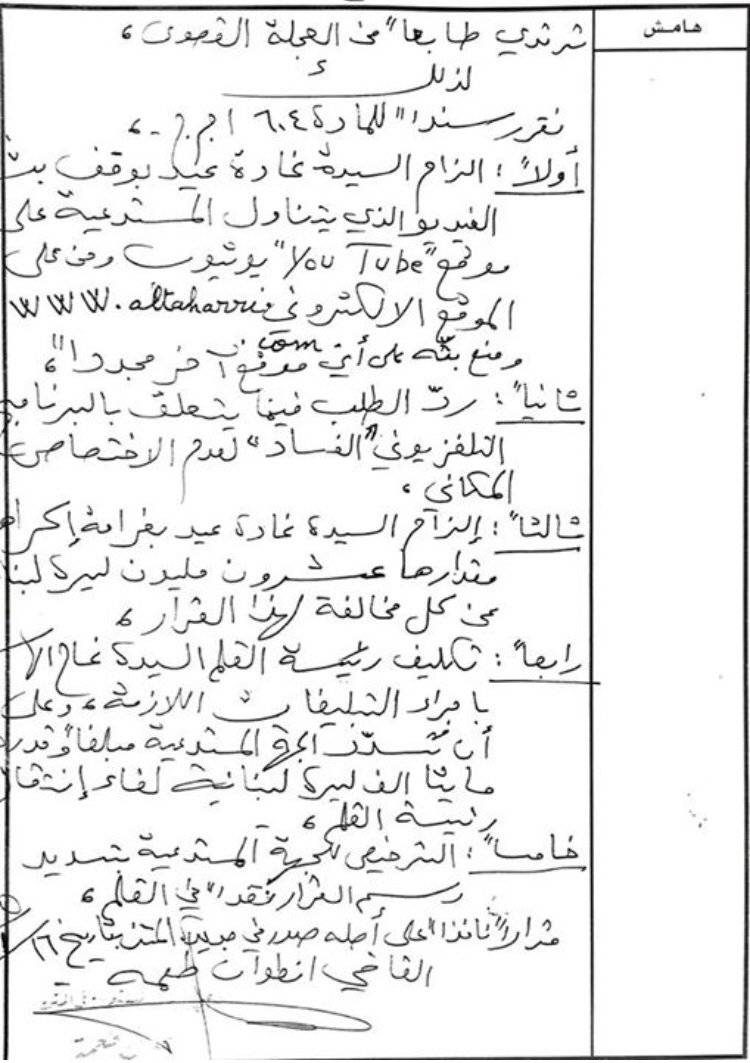 هامش
ترتدي طابعاً من العجلة القصوى،
لذلك
نقرر سنداً للمادة ٦٠٤ ا.م.م.،
أولاً: الزام السيدة غادة عيد بوقف بث
الفيديو الذي يتناول المستدعية على
موقع "You Tube" يوتيوب ومن على
الموقع الالكتروني www.altaharri
com
ومنع بثّه على أي موقع آخر مجدداً،
ثانياً: ردّ الطلب فيما يتعلق بالبرنامج
التلفزيوني "الفساد" لعدم الاختصاص
المكاني،
ثالثاً: إلزام السيدة غادة عيد بغرامة إكراهية
مقدارها عشرون مليون ليرة لبنانية
عن كل مخالفة لهذا القرار،
رابعاً: تكليف رئيسة القلم السيدة
باجراء التبليغات اللازمة، وعلى
أن تسدّد الجهة المستدعية مبلغاً وقدره
مايتا الف ليرة لبنانية لقاء إنتقال
رئيسة القلم،
خامساً: الترخيص للجهة المستدعية بتسديد
رسم القرار نقداً في القلم،
قراراً نافذاً على أصله صدر في جديدة المتن بتاريخ
القاضي انطوان طعمه